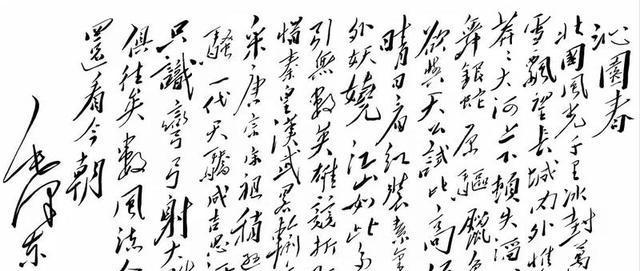 沁園春
北國風光千里冰封萬
雪飄望長城內外惟
莽々大河上下頓失滔
舞銀蛇原驅臘
欲與天公試比高
晴日看紅裝素
外妖嬈江山如此多
引無數英雄競折
惜秦皇漢武略輸
采唐宗宋祖稍遜
騷一代天驕成吉思
只識彎弓射大
俱往矣數風流人
還看今朝
毛澤東